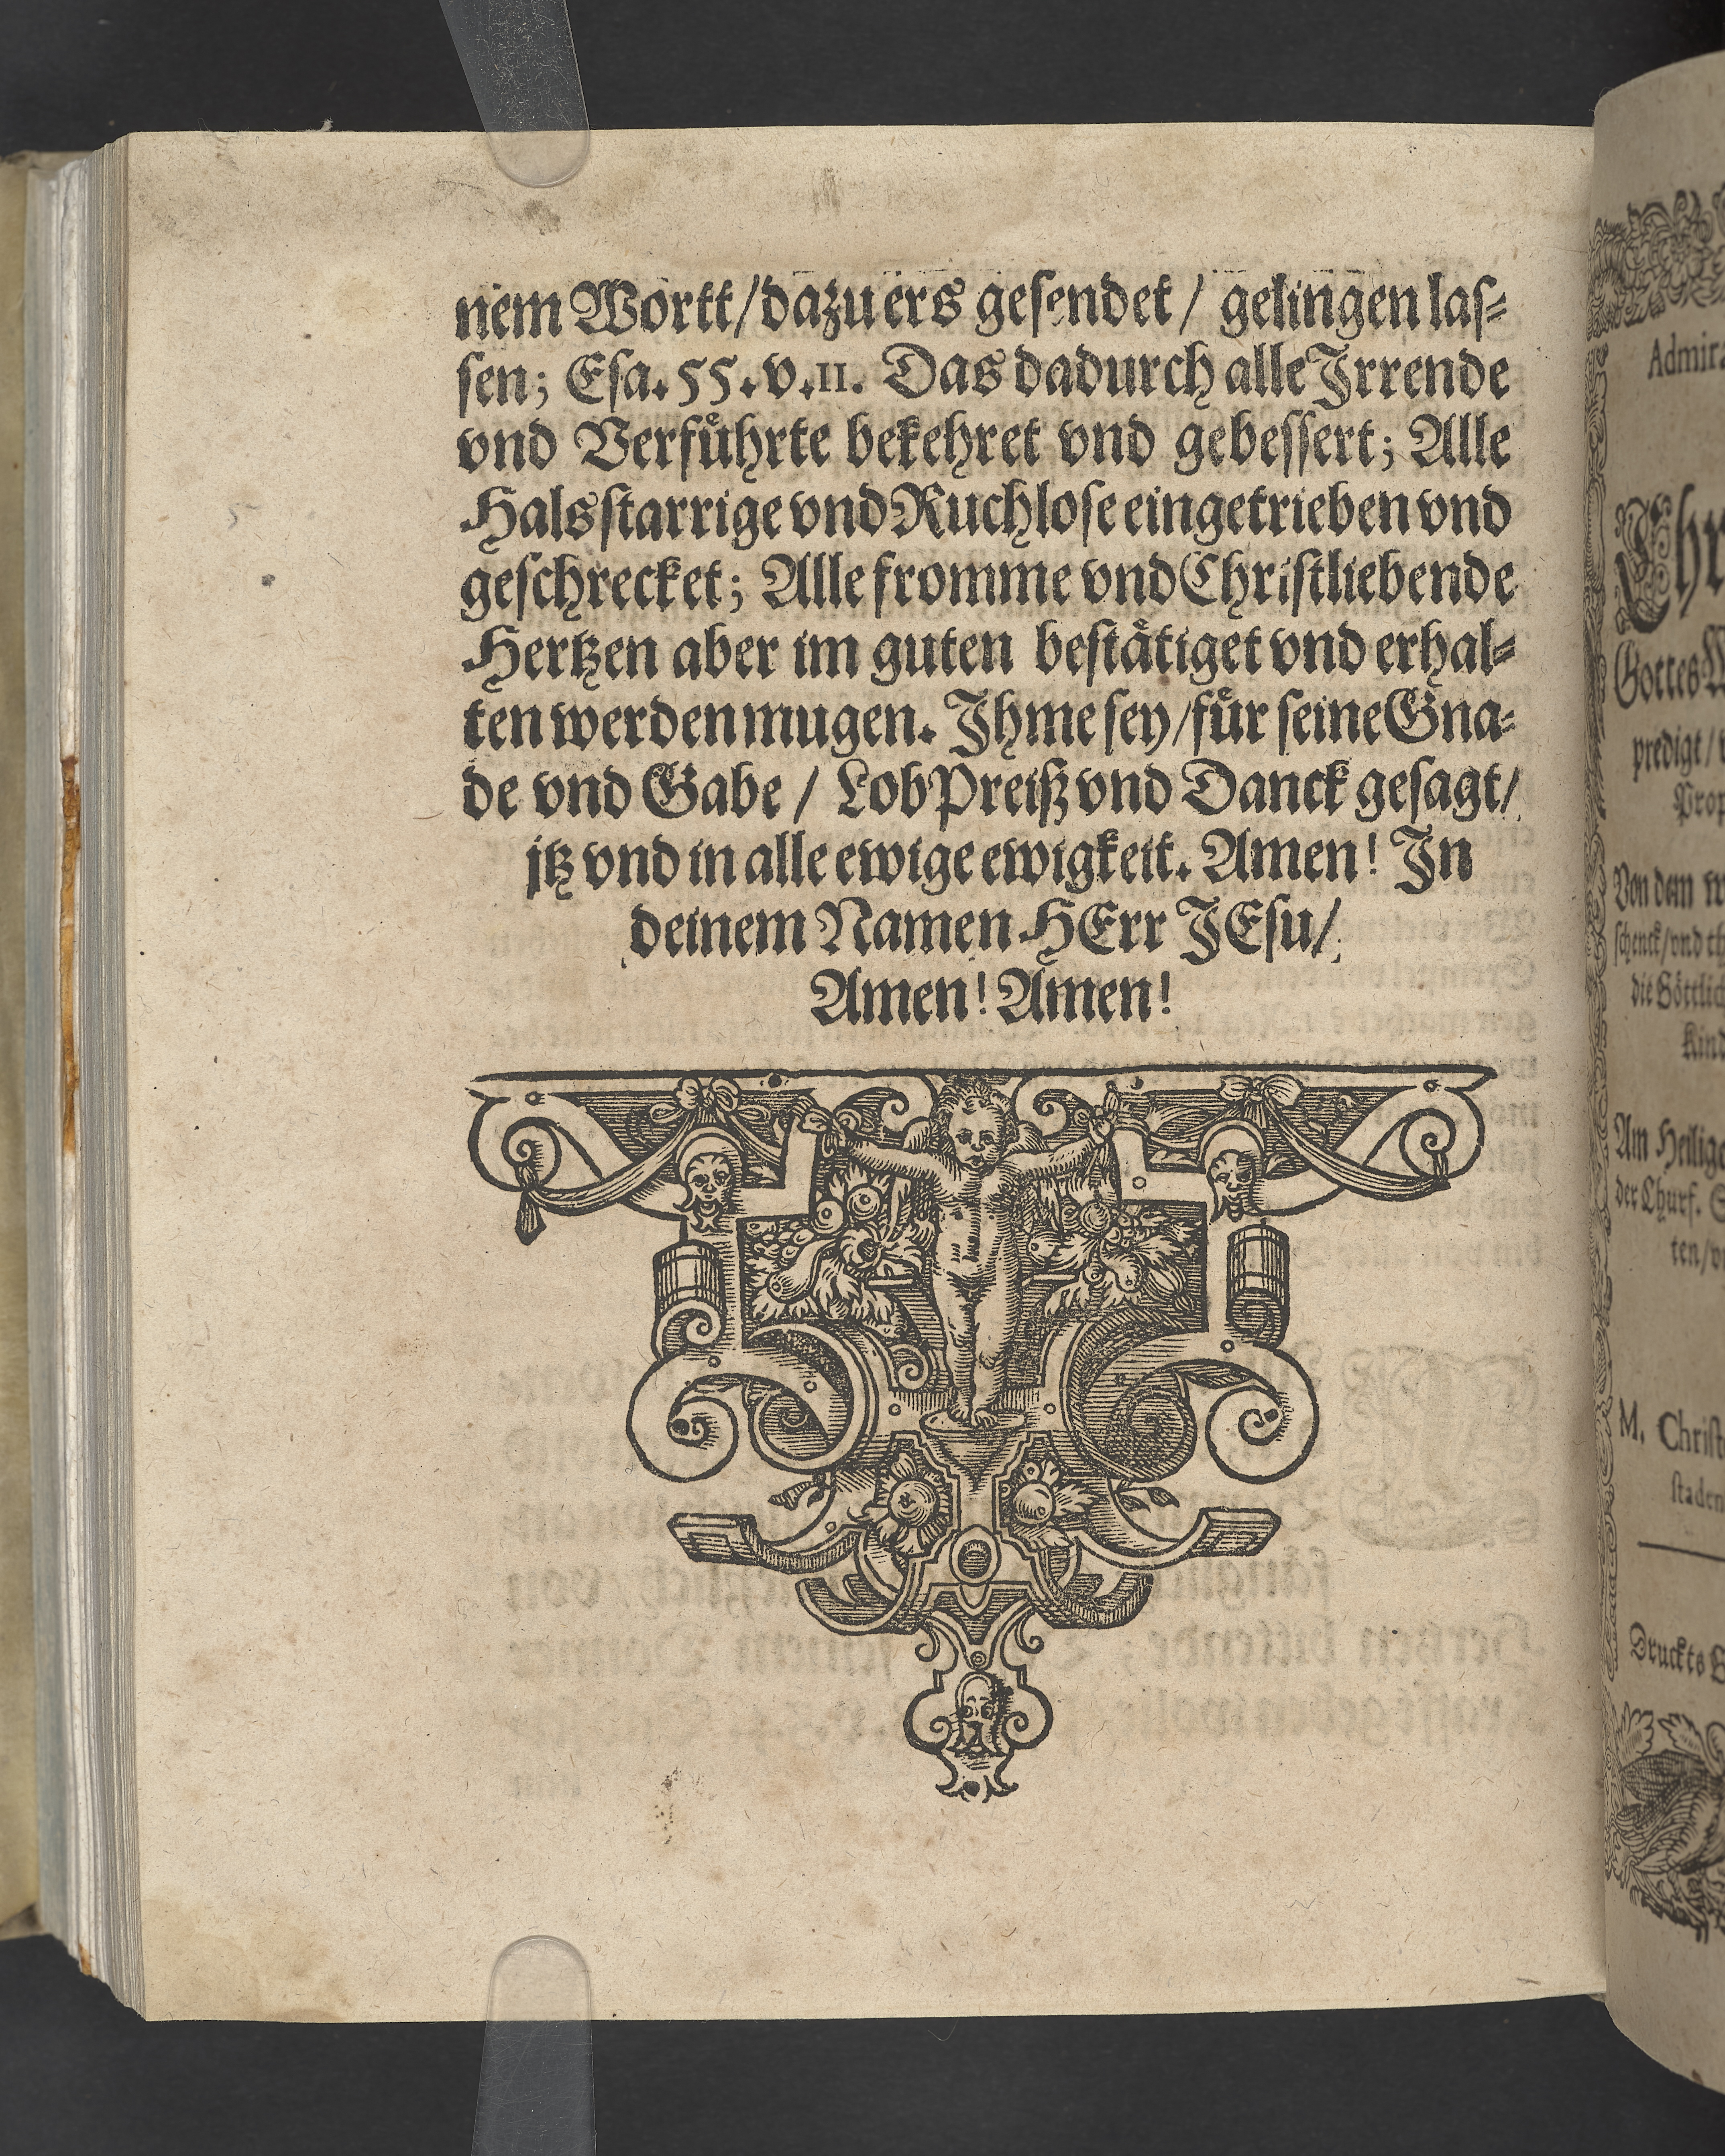 nem Wortt/dazu ers gesendet/ gelingen las⸗
sen; Esa. 55. v. 11. Das dadurch alle Irrende
vnd Verfuͤhrte bekehret vnd gebessert; Alle
Halsstarrige vnd Ruchlose eingetrieben vnd
geschrecket; Alle fromme vnd Christliebende
Hertzen aber im guten bestaͤtiget vnd erhal⸗
ten werden mugen. Ihme sey/fuͤr seine Gna⸗
de vnd Gabe/ Lob Preiß vnd Danck gesagt/
jtz vnd in alle ewige ewigkeit. Amen! In
deinem Namen HErr JEsu/
Amen! Amen!
Gottes
predigt/
Von dem
schenck/vnd
Am
der Churf.
ten/
M. Christ
Druckts